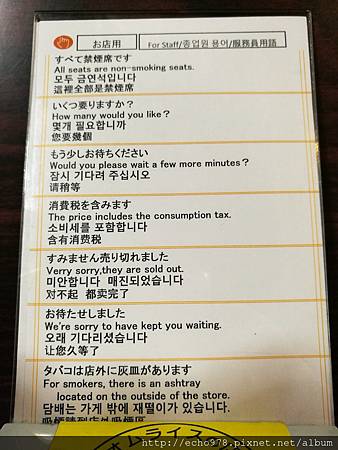 お店用 For Staff/종업원 용어/服務員用語
すべて禁煙席です
All seats are non-smoking seats.
모두 금연석입니다
這裡全部是禁煙席
いくつ要りますか？
How many would you like？
몇개 필요합니까
您要幾個
もう少しお待ちください
Would you please wait a few more minutes？
잠시 기다려 주십시오
请稍等
消費税を含みます
The price includes the consumption tax.
소비세를 포함합니다
含有消费税
すみません売り切れました
Verry sorry,they are sold out.
미안합니다 매진되었습니다
对不起 都卖完了
お待たせしました
We're sorry to have kept you waiting.
오래 기다리셨습니다
让您久等了
タバコは店外に灰皿があります
For smokers, there is an ashtray
located on the outside of the store.
담배는 가게 밖에 재떨이가 있습니다.
吸煙請到店外吸煙區
オムライス
http://echo978.pixnet.net/album